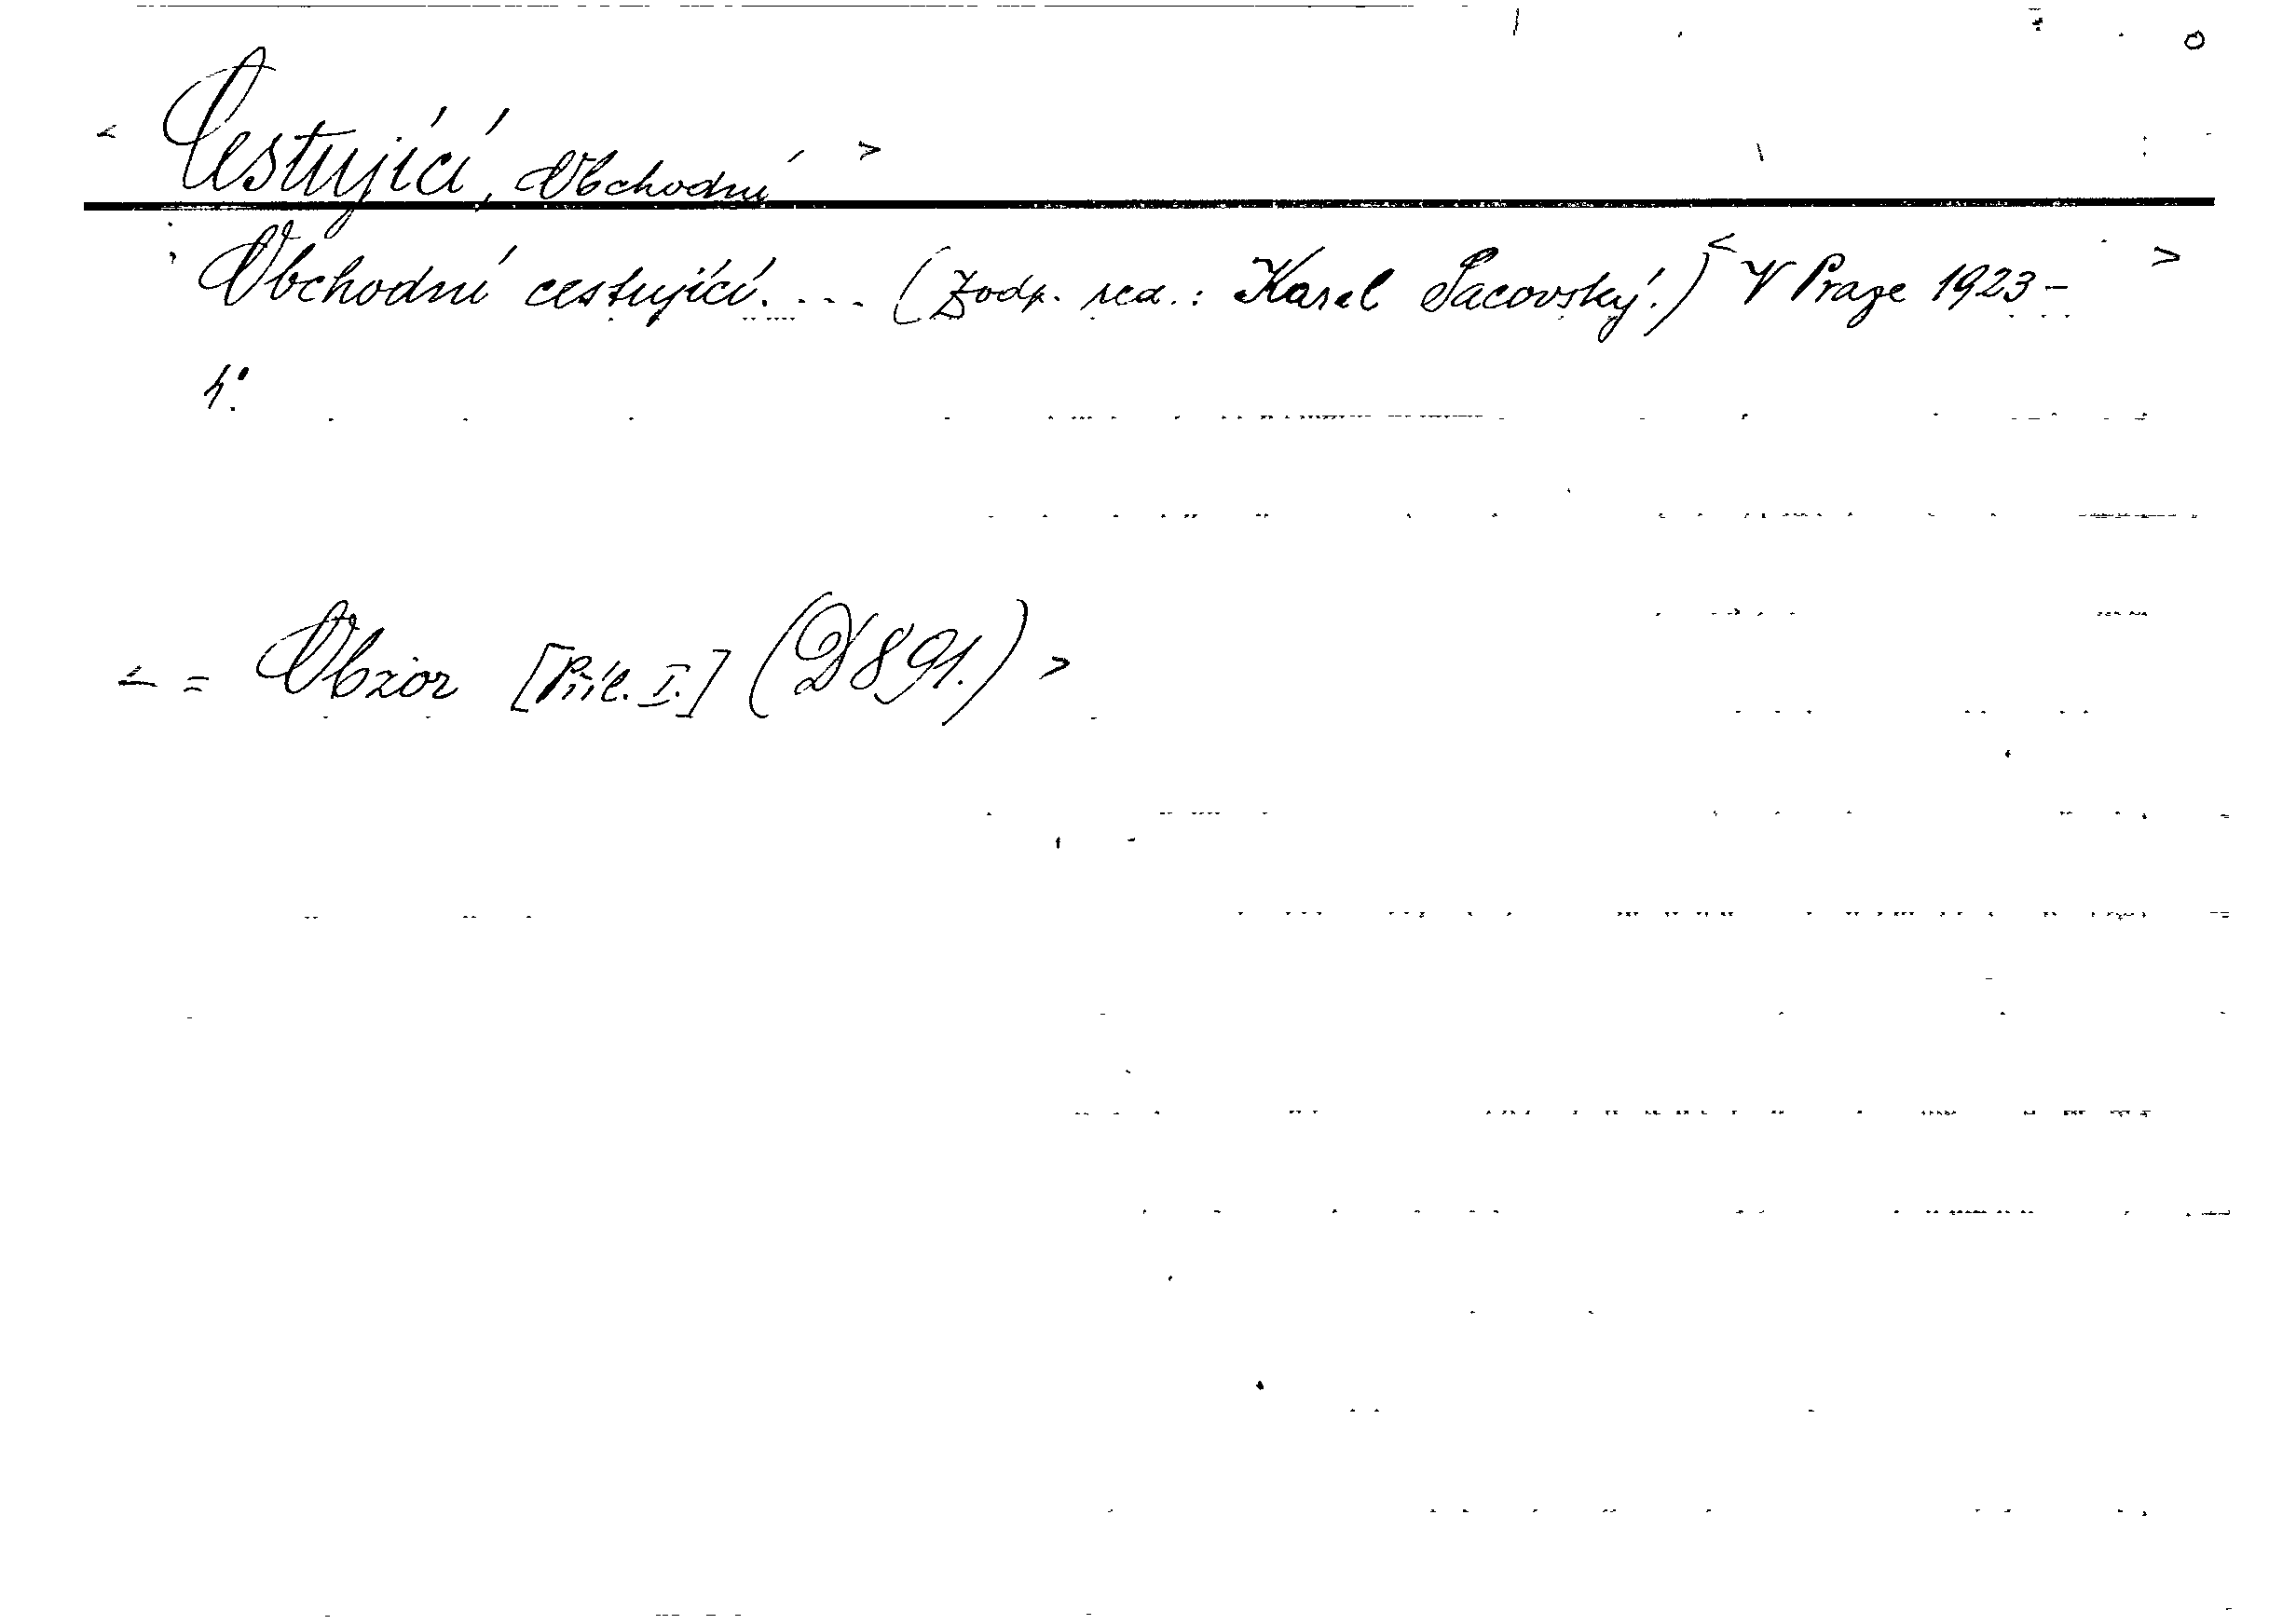 < Cestující, Obchodní >
Obchodní cestující. ... (Zodp. red.: Karel Pacovský.) < V Praze 1923 - >
4°.
< = Obzor [Příl. I.] (D 891.) >